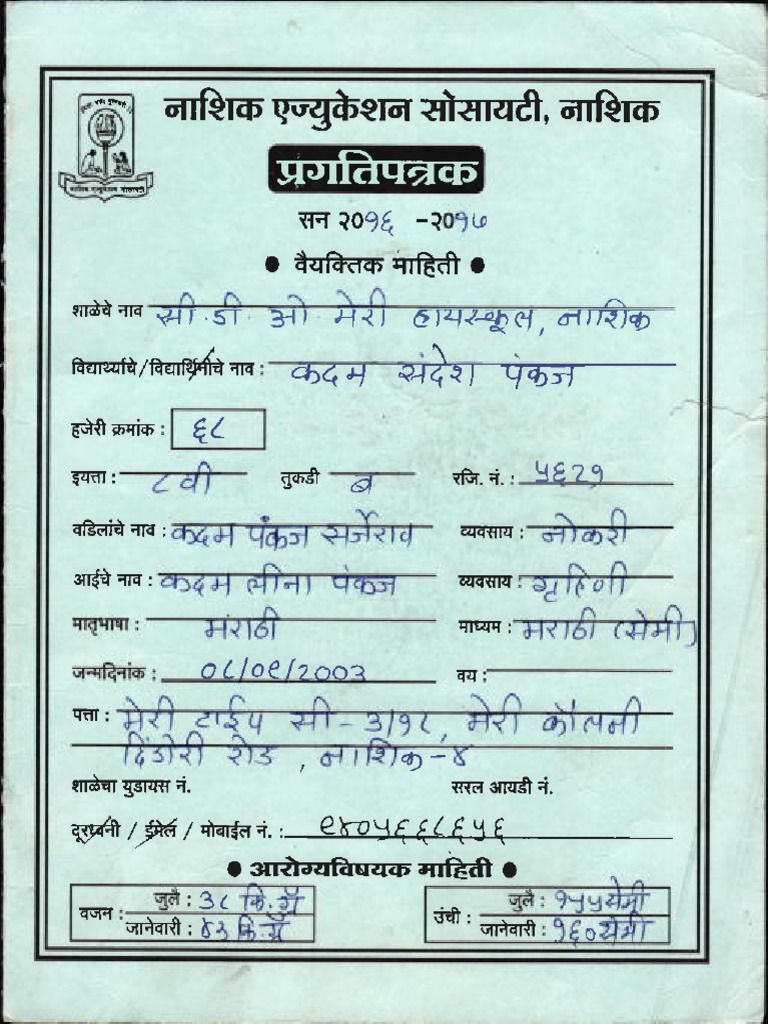 नाशिक एज्युकेशन सोसायटी, नाशिक
प्रगतिपत्रक
सन २०१६ -२०१७
• वैयक्तिक माहिती •
शाळेचे नाव सी.डी.ओ. मेरी हायस्कूल, नाशिक
विद्यार्थ्याचे/विद्यार्थिनीचे नाव : कदम संदेश पंकज
हजेरी क्रमांक : ६८
इयत्ता : ८वी तुकडी ब रजि. नं. : ५६२१
वडिलांचे नाव : कदम पंकज सर्जेराव व्यवसाय : नोकरी
आईचे नाव : कदम लीना पंकज व्यवसाय : गृहिणी
मातृभाषा : मराठी माध्यम : मराठी (सेमी)
जन्मदिनांक : ०८/०९/२००३ वय :
पत्ता : मेरी टाईप सी - ३/१८, मेरी कॉलनी
दिंडोरी रोड, नाशिक-४
शाळेचा युडायस नं. सरल आयडी नं.
दूरध्वनी / ईमेल / मोबाईल नं. : ९४०५६६८६५६
• आरोग्यविषयक माहिती •
वजन : जुलै : ३८ कि.ग्रॅ उंची : जुलै : १५५सेमी
जानेवारी : ४३ कि.ग्रॅ जानेवारी : १६०सेमी